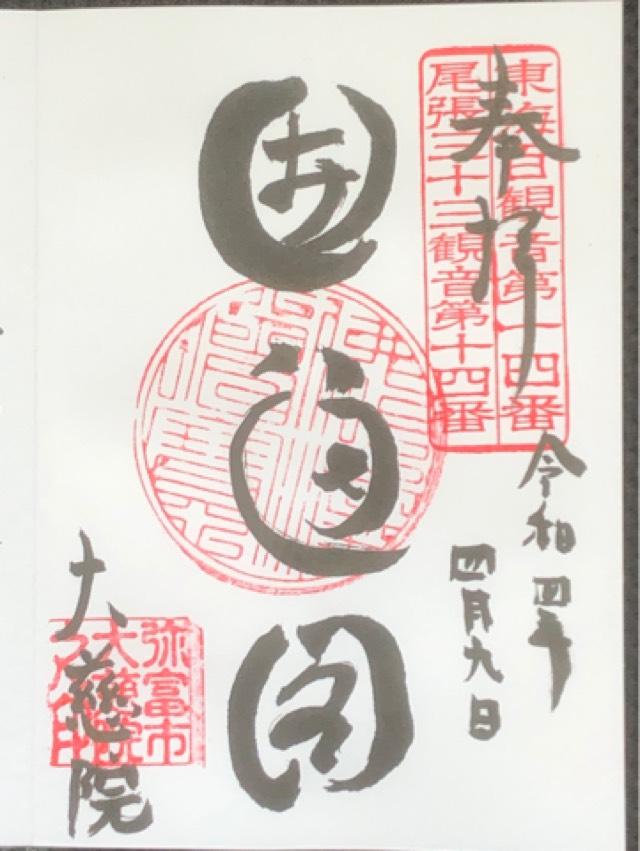 東海百観音第一四番
尾張三十三観音第十四番
奉拝
令和四年
四月九日
圓通閣
大慈院
弥富市
大慈院
之印